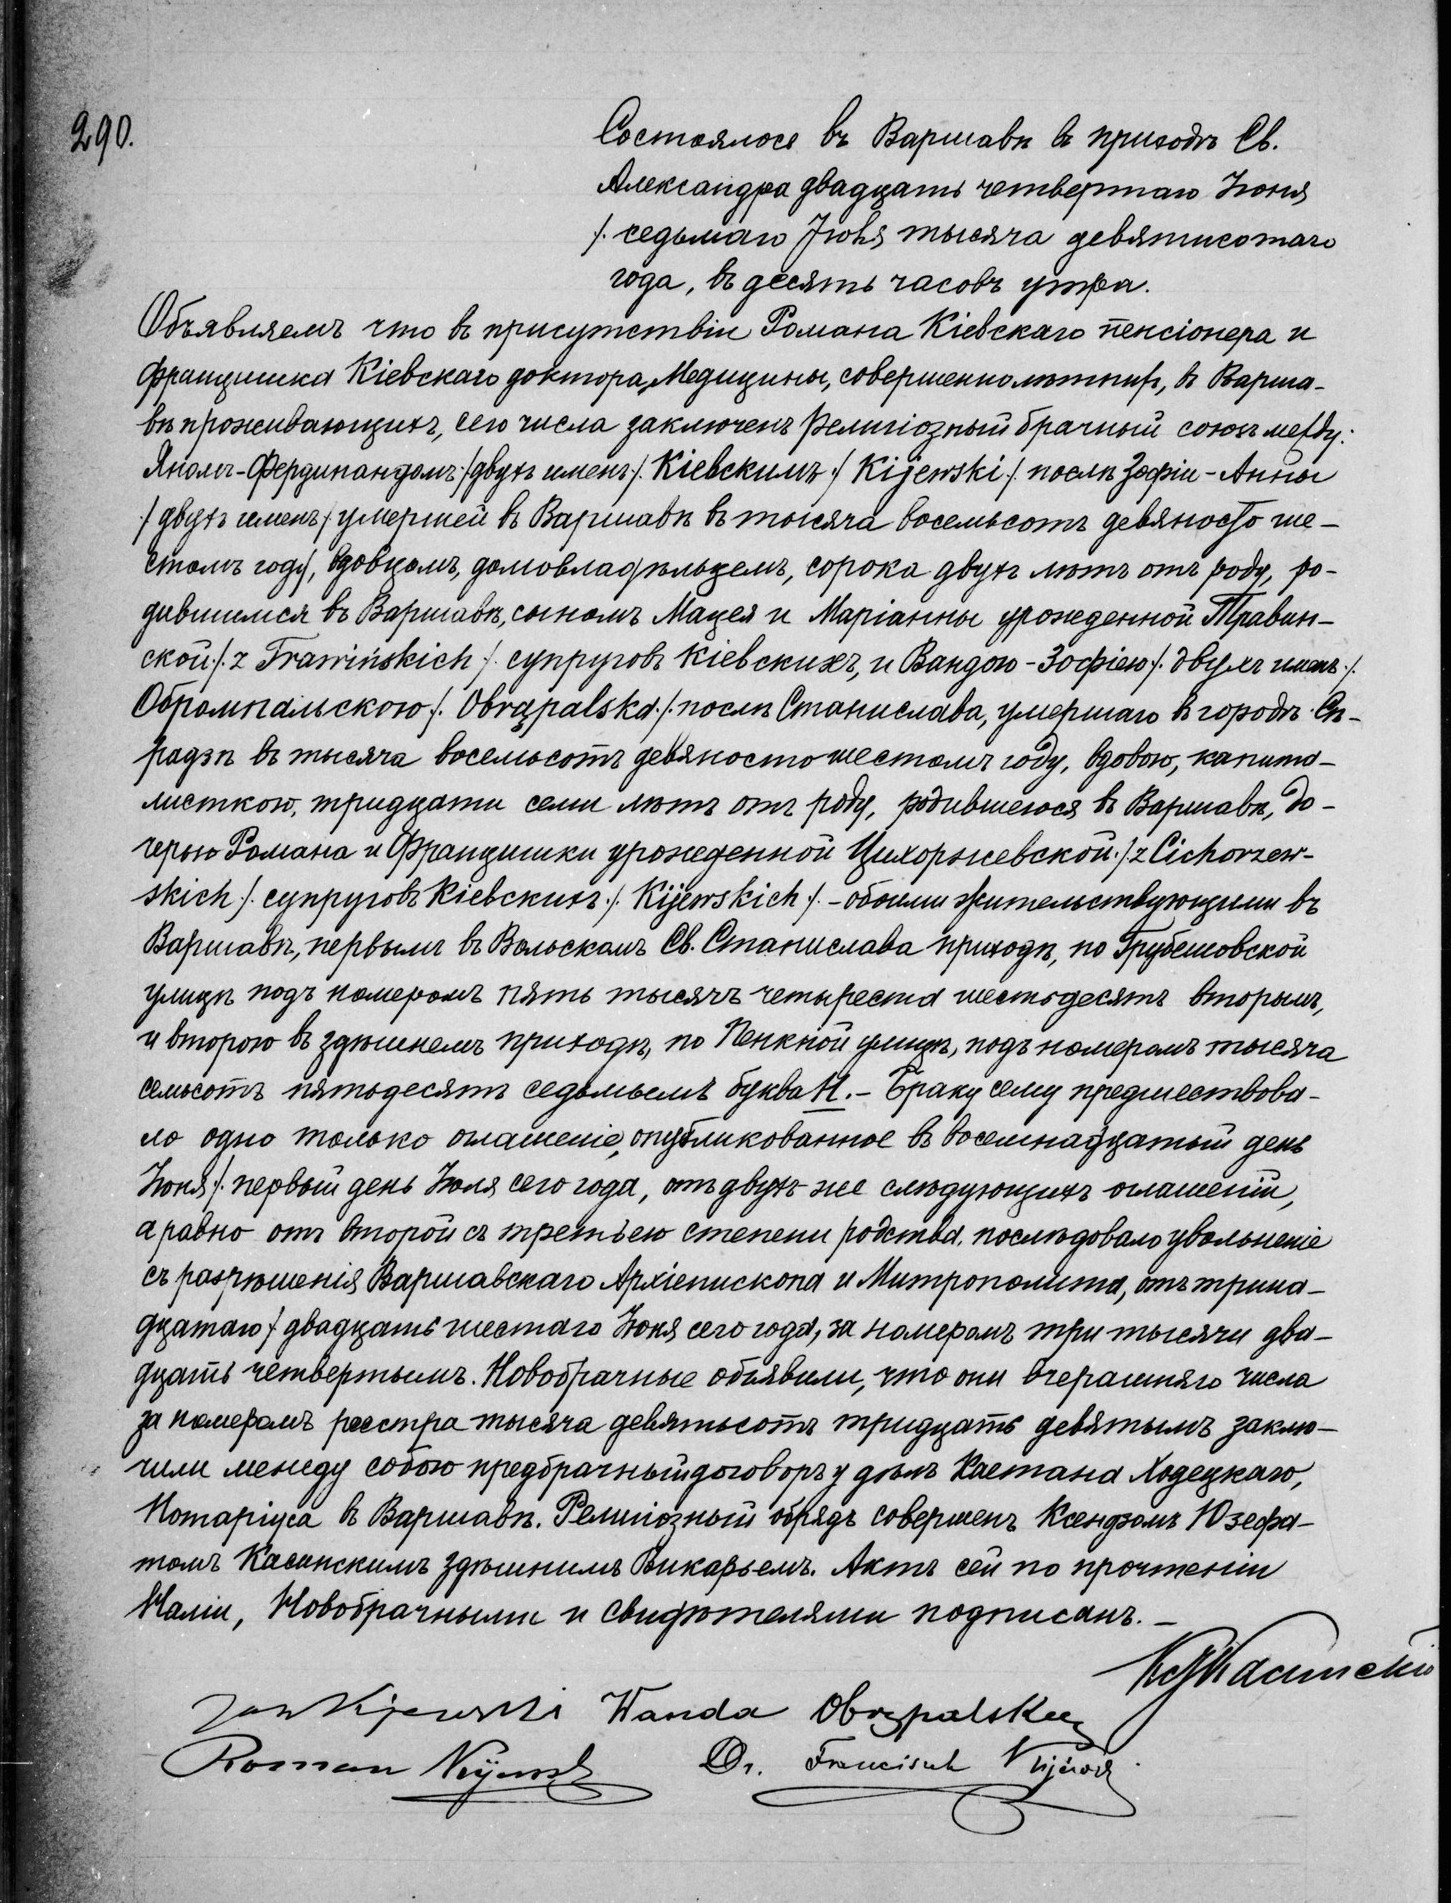 290.
Состоялось въ Варшавѣ въ приходѣ Св.
Александра двадцать четвертаго Іюня
/: седьмаго Іюля тысяча девятисотаго
года, въ десять часовъ утра.
Объявляемъ что въ присутствіи Романа Кіевскаго пенсіонера и
Францишка Кіевскаго доктора Медицины, совершеннолѣтнихъ, въ Варша-
вѣ проживающихъ, сего числа заключенъ религіозный брачный союзъ между:
Яномъ-Фердинандомъ /:двухъ именъ/: Кіевскимъ /: Kijewski /: послѣ Зофіи-Анны
/: двухъ именъ /: умершей въ Варшавѣ въ тысяча восемьсотъ девяносто ше-
стомъ году, вдовцомъ, домовладѣльцемъ, сорока двухъ лѣтъ отъ роду, ро-
дившимся въ Варшавѣ, сыномъ Мацея и Маріанны урожденной Травин-
ской /: z Trawińskich /: супруговъ Кіевскихъ, и Вандою-Зофіею /: двухъ именъ /:
Обромпальскою /: Obrąpalska /: послѣ Станислава, умершаго въ городѣ Сѣ-
радзѣ въ тысяча восемьсотъ девяносто шестомъ году, вдовою, капита-
листкою, тридцати семи лѣтъ отъ роду, родившеюся въ Варшавѣ, до-
черью Романа и Францишки урожденной Цихоржевской /: z Cichorzew-
skich /: супруговъ Кіевскихъ /: Kijewskich /: - обоими жительствующими въ
Варшавѣ, первымъ въ Вольскомъ Св. Станислава приходѣ, по Грубешовской
улицѣ подъ номеромъ пять тысячъ четыреста шестьдесятъ вторымъ,
и второю въ здѣшнемъ приходѣ, по Пенкной улицѣ, подъ номеромъ тысяча
семьсотъ пятьдесятъ седьмымъ буква Н. - Браку сему предшествова-
ло одно только оглашеніе, опубликованное въ восемнадцатый день
Іюня /: первый день Іюля сего года, отъ двухъ же слѣдующихъ оглашеній,
а равно отъ второй съ третьею степени родства, послѣдовало увольненіе
съ разрѣшенія Варшавскаго Архіепископа и Митрополита, отъ трина-
дцатаго /: двадцать шестаго Іюня сего года, за номеромъ три тысячи два-
дцать четвертымъ. Новобрачные объявили, что они вчерашняго числа
за номеромъ реестра тысяча девятьсотъ тридцать девятымъ заклю-
чили между собою предбрачный договоръ у дѣлъ Каетана Ходецкаго,
Нотаріуса въ Варшавѣ. Религіозный обрядъ совершенъ Ксендзомъ Юзефа-
томъ Касинскимъ здѣшнимъ Викарьемъ. Актъ сей по прочтеніи
Нами, Новобрачными и свидѣтелями подписанъ. -
Касинскій
Jan Kijewski Wanda Obrąpalska
Roman Kijewski Dr. Franciszek Kijewski